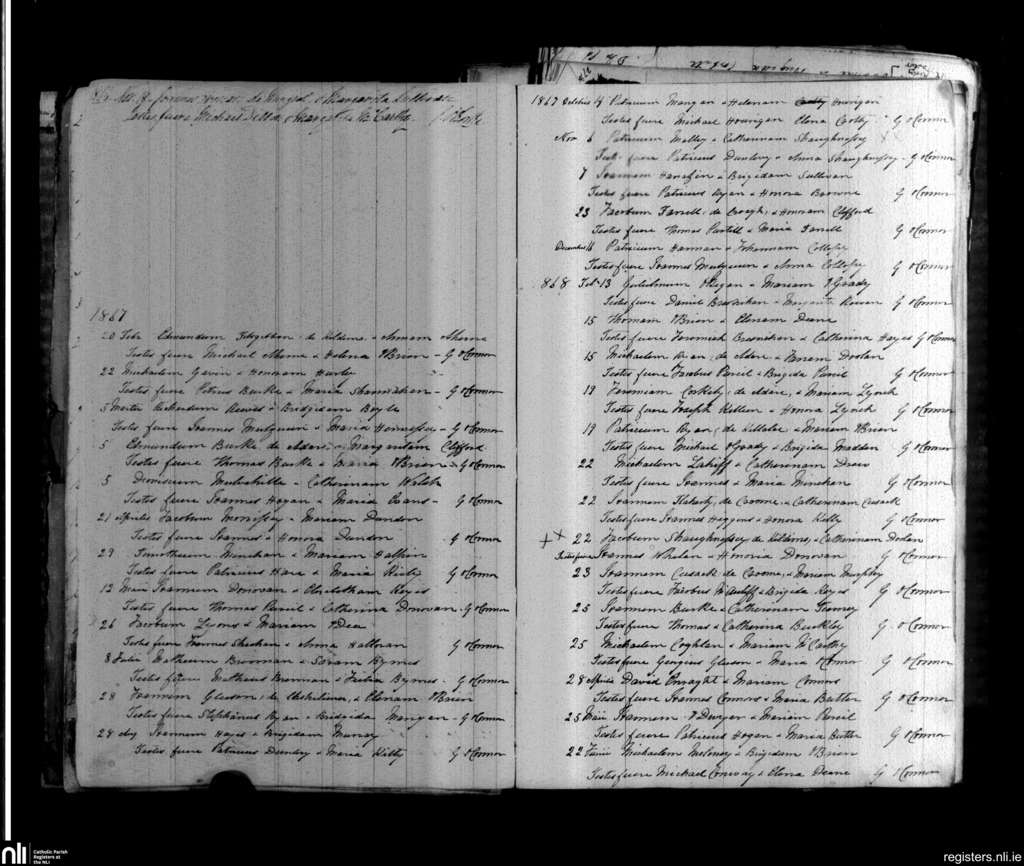 de Mungret & Margarita Sullivan
Testes fuere Michael & Margarita McCarthy
1867
20 Feb. Edmundum Fitzgibbon de Kildimo & Annam Aherne
Testes fuere Michael Aherne & Helena O'Brien - G O'Connor
22 Michaelem Gavin & Honoram Hartv
Testes fuere Patrius Burke & Maria Shanahan - G O'Connor
5 Martii Richardum & Bridgidam Boyle
Testes fuere Joannes Mulqueen & Maria Hennessy - G O'Connor
5 Edmundum Burke de Adare & Margaritam Clifford
Testes fuere Thomas Burke & Maria O'Brien - G O'Connor
5 Dionisium Mulcahille & Catherinam Welsh
Testes fuere Joannes Hogan & Maria - G O'Connor
21 Aprilis Jacobum Morrissy & Mariam Dundon
Testes fuere Joannes & Honora Dundon - G O'Connor
29 Timotheum Minehan & Mariam
Testes fuere Patricius Hare & Maria - G O'Connor
12 Maii Joannem Donovan & Elizabetham Keyes
Testes fuere Thomas Purcil & Catherina Donovan - G O'Connor
26 Jacobum Lyons & Mariam O'Dea
Testes fuere Joannes Sheehan & Anna Halloran G O'Connor
8 Julii Matheum Brosnan & Saram Byrnes
Testes fuere Mathias Brennan & Julia Byrnes - G O'Connor
28 Joannem Gleeson de & Elenam O'Brien
Testes fuere Stephanus Ryan & Bridgida Mangan - G O'Connor
28 Aug Joannem Hayes & Brigidam Murray
Testes fuere Patricius Dundy & Maria Kilty G O'Connor
1867 Octobris 4 Patricium Mangan & Helenam Hourigan
Testes fuere Michael Hourigan Elena Carthy G O'Connor
Nov. 6 Patricium Malley & Catherinam Shaughnessy
Test. fuere Patricius Dunlevy & Anna Shaughnessy - G O'Connor
7 Joannem Hanafin & Brigidam Sullivan
Testes fuere Patricius Ryan & Honora Browne G O'Connor
23 Jacobum Farrell de Croagh & Honoram Clifford
Testes fuere Thomas Purtill & Maria Farrell G O'Connor
Decembris 16 Patricium Hannan & Johannam Collopy
Testes fuere Joannes Mulqueen & Anna Collopy G O'Connor
1868 Feb. 13 Gulielmum O'Regan & Mariam O'Grady
Testes fuere Daniel Bresnihan & Margarita G O'Connor
15 Thomam O'Brien & Elenam Deane
Testes fuere Jeremiah Bresnihan & Catherina Hayes G O'Connor
15 Michaelem Ryan de Adare & Mariam Doolan
Testes fuere Jacobus Purcil & Brigida Purcil G O'Connor
19 Jeremiam Corkery de Adare & Mariam Lynch
Testes fuere Joseph & Honora Lynch G O'Connor
19 Patricium Ryan de Killaloe & Mariam O'Brien
Testes fuere Michael O'Grady & Brigida Madden G O'Connor
22 Michaelem Lahiff & Catherinam Drew
Testes fuere Joannes & Maria Minehan G O'Connor
22 Joannem Flaherty de Cavone & Catherinam Cusack
Testes fuere Joannes Higgins & Honora Kelly G O'Connor
++ 22 Jacobum Shaughnessy de Kildimo & Catherinam Dolan
Testes fuere Joannes Whelan & Honoria Donovan G O'Connor
23 Joannem Cusack de Cavone & Mariam Murphy
Testes fuere Jacobus McAuliff & Brigida Keyes G O'Connor
25 Joannem Burke & Catherinam Tierney
Testes fuere Thomas & Catherina Buckley G. O'Connor
25 Michaelem Coghlan & Mariam McCarthy
Testes fuere Georgius Gleeson & Maria O'Connor G O'Connor
28 Aprilis David Enraght & Mariam Connors
Testes fuere Joannes Connors & Maria Butler G O'Connor
25 Maii Joannem O'Dwyer & Mariam Purcil
Testes fuere Patricius Hogan & Maria Butler G O'Connor
22 Junii Michaelem Moloney & Brigidam O'Brien
Testes fuere Michael Conway & Elena Deane G O'Connor
nli Catholic Parish
Registers at
the NLI
registers.nli.ie